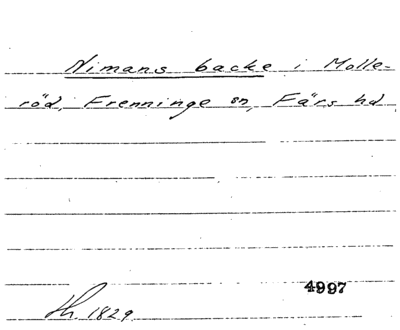 Nimans backe i Molle-
röd, Frenninge sn, Färs hd
4997
Th. 1829